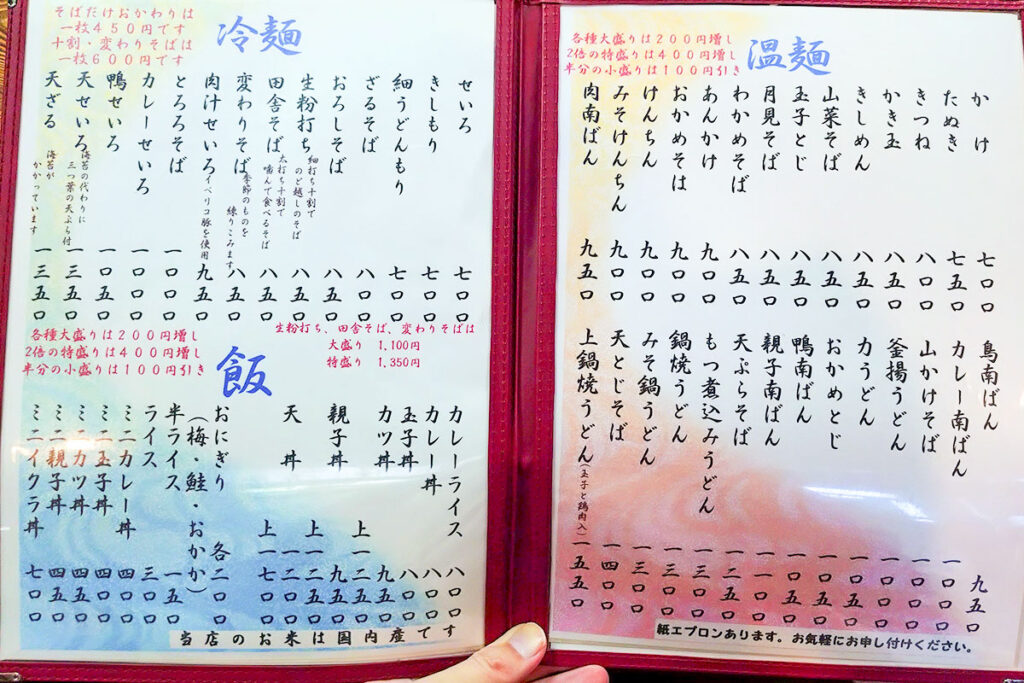 温麺
各種大盛りは200円増し
2倍の特盛りは400円増し
半分の小盛りは100円引き
かけ 七〇〇
たぬき 七五〇
きつね 八〇〇
かき玉 八五〇
きしめん 八〇〇
山菜そば 八五〇
玉子とじ 八〇〇
月見そば 八五〇
わかめそば 八五〇
あんかけ 九〇〇
おかめそば 九〇〇
けんちん 九〇〇
みそけんちん 九〇〇
肉南ばん 九五〇
鳥南ばん 九五〇
カレー南ばん 一〇〇〇
山かけそば 一〇〇〇
釜揚うどん 一〇〇〇
力うどん 一〇五〇
おかめとじ 一〇五〇
鴨南ばん 一〇五〇
親子南ばん 一一〇〇
天ぷらそば 一二五〇
もつ煮込みうどん 一三〇〇
鍋焼うどん 一三〇〇
みそ鍋うどん 一三〇〇
天とじそば 一四〇〇
上鍋焼うどん(玉子と鶏肉入) 一五五〇
紙エプロンあります。お気軽にお申し付けください。
冷麺
そばだけおかわりは
一枚450円です
十割・変わりそばは
一枚600円です
せいろ 七〇〇
きしもり 七〇〇
細うどんもり 七〇〇
ざるそば 八〇〇
おろしそば 八五〇
生粉打ち 八五〇
細打ち十割で
のど越しのそば
田舎そば 八五〇
太打ち十割で
噛んで食べるそば
変わりそば 八五〇
季節のものを
練りこみます
肉汁せいろ イベリコ豚を使用 九五〇
とろろそば 一〇〇〇
カレーせいろ 一〇〇〇
鴨せいろ 一〇五〇
天せいろ 一三五〇
海苔の代わりに
三つ葉の天ぷら付
天ざる 一三五〇
海苔が
かかっています
生粉打ち、田舎そば、変わりそばは
大盛り 1,100円
特盛り 1,350円
各種大盛りは200円増し
2倍の特盛りは400円増し
半分の小盛りは100円引き
飯
カレーライス 八〇〇
カレー丼 八〇〇
玉子丼 八〇〇
カツ丼 九五〇
上一二五〇
親子丼 九五〇
上一二五〇
天丼 一二〇〇
上一七〇〇
おにぎり 各二〇〇
(梅・鮭・おかか)
半ライス 一五〇
ライス 三〇〇
ミニカレー丼 四〇〇
ミニ玉子丼 四〇〇
ミニカツ丼 四五〇
ミニ親子丼 四五〇
ミニイクラ丼 七〇〇
当店のお米は国内産です